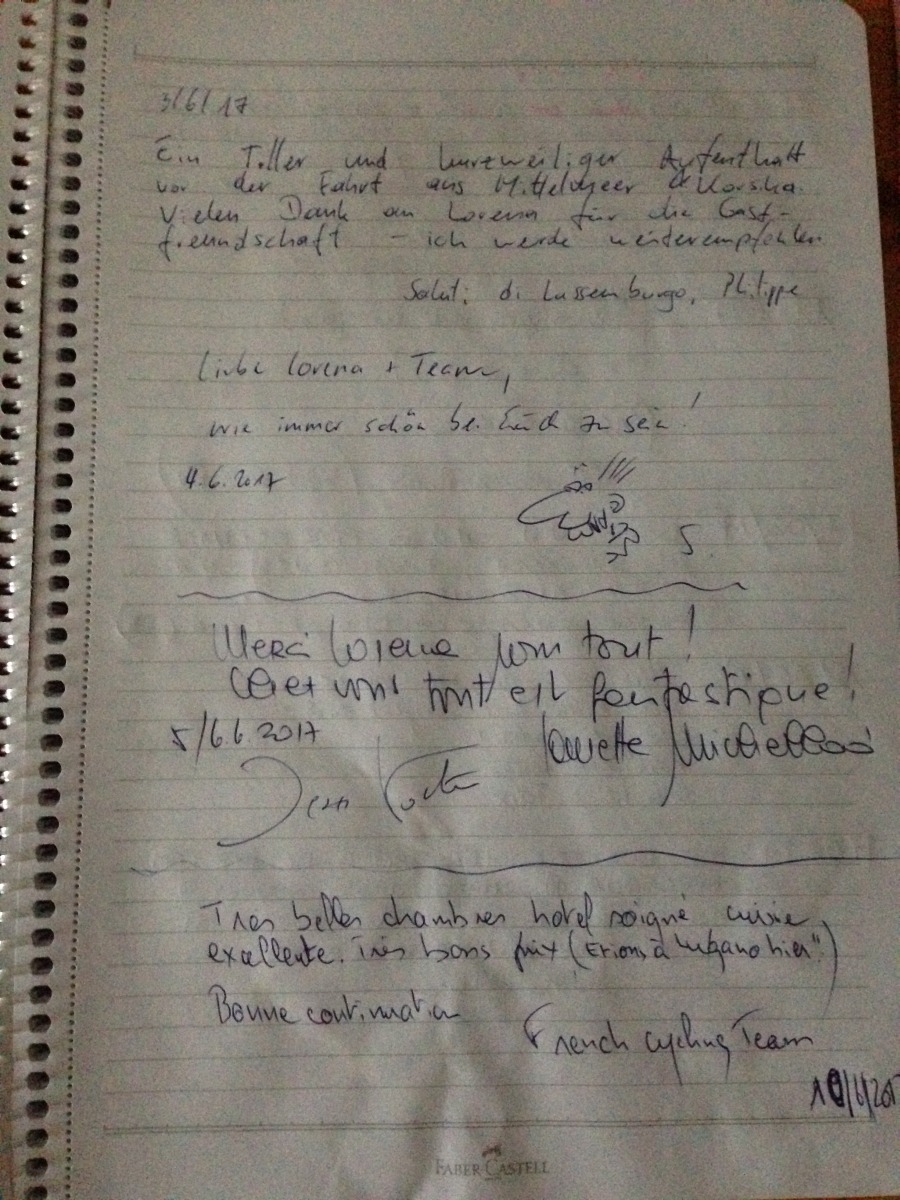 3/6/17
Ein Toller und kurzweiliger Aufenthalt
vor der Fahrt ans Mittelmeer & Korsika.
Vielen Dank an Lorena für die Gast-
freundschaft - ich werde weiterempfehlen
Saluti di Lussemburgo, Philippe
Liebe Lorena + Team,
wie immer schön bei Euch zu sein!
4.6.2017
S.
Merci Lorena pour tout!
Chez vous tout est fantastique!
5/6.6.2017
Tres belles chambres hotel soigné cuisine
excellente. Très bons prix (Etions à Lugano hier")
Bonne continuation
French cycling Team
10/6/201
FABER CASTELL